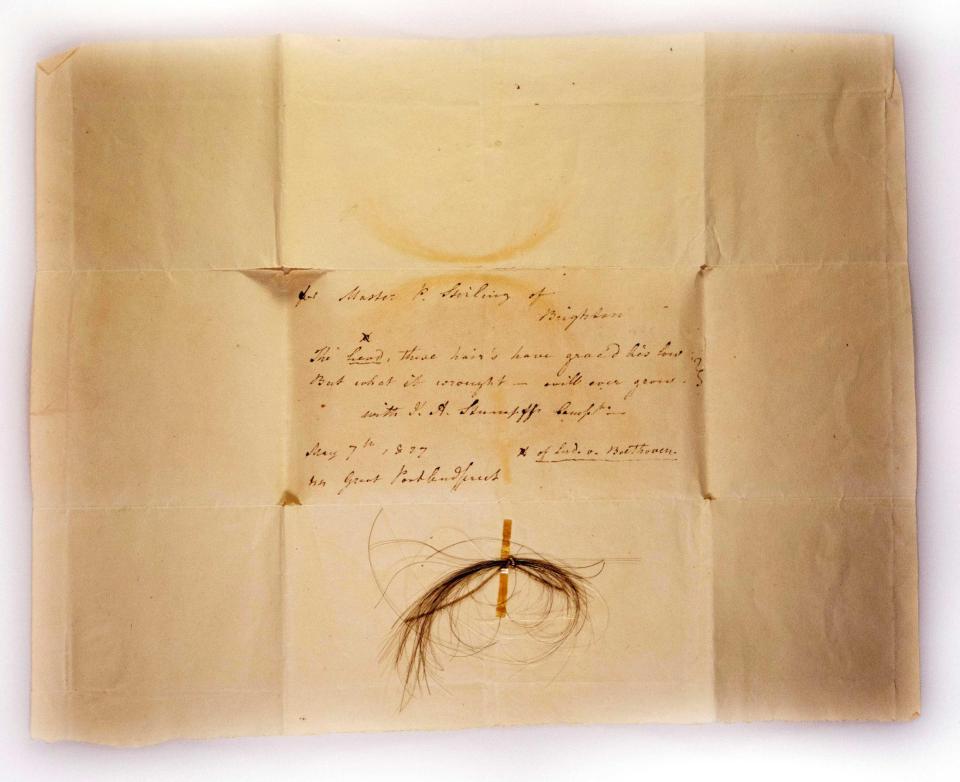 for Master P. Stirling of
Brighton
x
The head, these hair's have grac'd lies low
But what it wrought – will ever grow.
with J. A. Stumpff's Compts –
May 7th 1837
x of Lud. v. Beethoven.
44 Great Portlandstreet